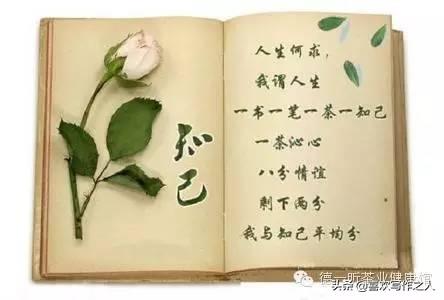 知己
人生何求，
我谓人生
一书一笔一茶一知己
一茶沁心
八分情谊
剩下两分
我与知己平均分
德一昕茶业健康馆
头条@喜欢写作之人